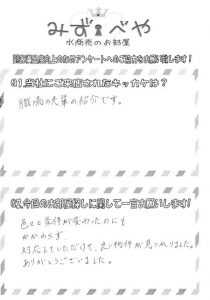 みずべや
水商売のお部屋
顧客満足度向上の為のアンケートへのご協力をお願い致します!
Q1.当社にご来店されたキッカケは?
職場の先輩の紹介です。
Q2.今回のお部屋探しに関して一言お願いします!
色々と条件が変わったのにも
かかわらず
対応していただけて、良い物件が見つかりました。
ありがとうございました。